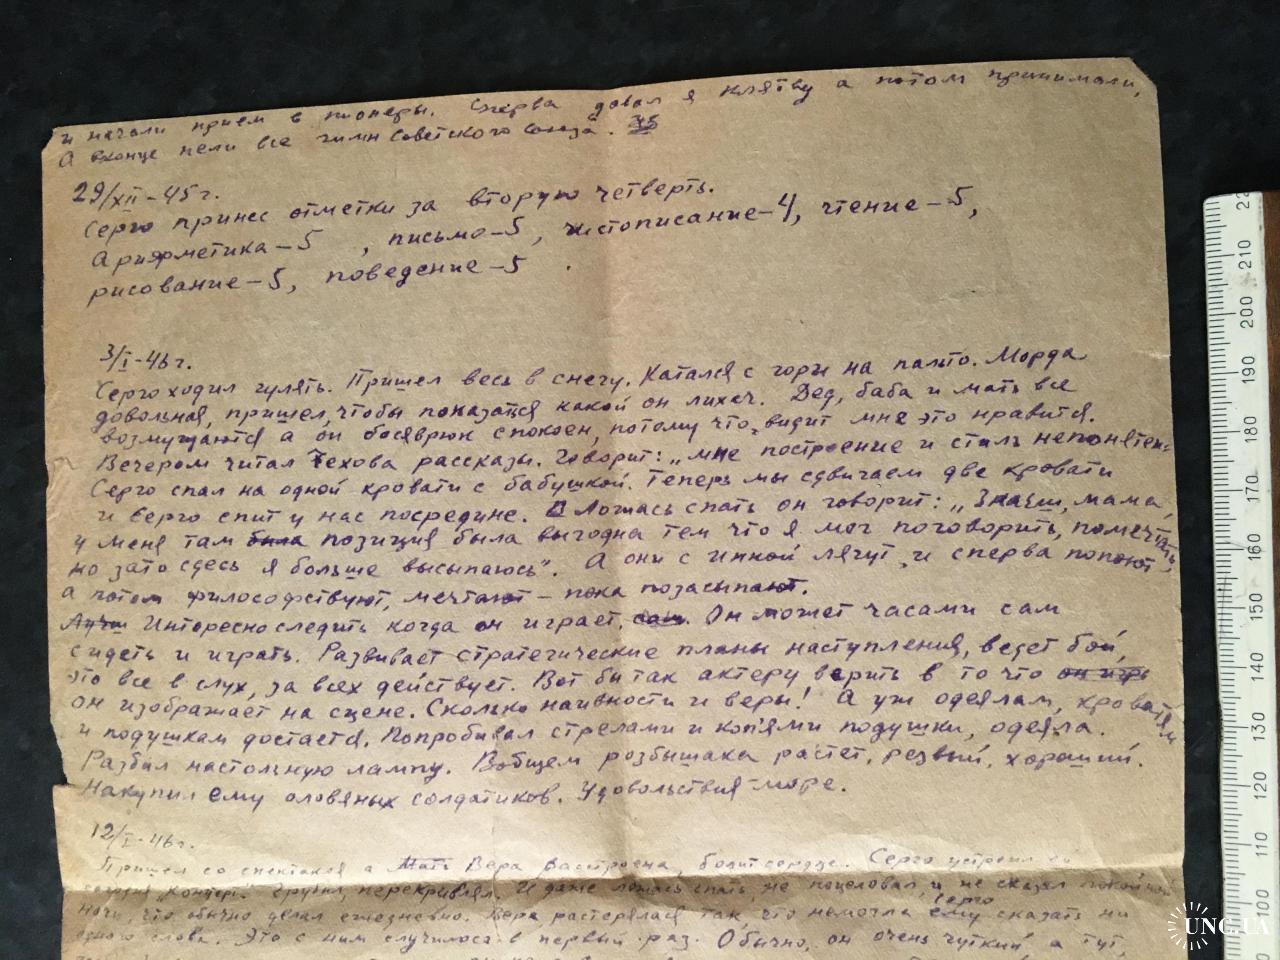 и начали прием в пионеры. Сперва давал я клятву а потом принимали,
А вконце пели все гимн Советского Союза.
29/XII-45 г.
Серго принес отметки за вторую четверть.
Арифметика-5, письмо-5, чистописание-4, чтение-5,
рисование-5, поведение-5.
3/I-46 г.
Серго ходил гулять. Пришел весь в снегу. Катался с горы на пальто. Морда
довольная, пришел, чтобы показатся какой он лихач. Дед, баба и мать все
возмущаются а он спокоен, потому что видит мне это нравится.
Вечером читал Чехова рассказы. Говорит: „мне построение и стиль непонятен.
Серго спал на одной кровати с бабушкой. Теперь мы сдвигаем две кровати
и Серго спит у нас посредине. Ложась спать он говорит: „Знаеш, мама,
у меня там была позиция была выгодна тем что я мог поговорить, помечтать,
но зато сдесь я больше высыпаюсь". А они с Инкой лягут и сперва попоют,
а потом философствуют, мечтают - пока позасыпают.
Интересно следить когда он играет, сам. Он может часами сам
сидеть и играть. Развивает стратегические планы наступления, ведет бой,
это все в слух, за всех действует. Вот бы так актеру верить в то что он игр
он изображает на сцене. Сколько наивности и веры! А уж одеялам, кроватям
и подушкам достается. Попробивал стрелами и копями подушки, одеяла.
Разбил настольную лампу. Вобщем розбышака растет, резвый, хороший.
Накупил ему оловяных солдатиков. Удовольствия - море.
12/I-46 г.
Пришел со спектакля а Мать Вера расстроена, болит сердце. Серго устроил ей
сегодня „концерт". Грубил, перекривлял. И даже ложась спать, не поцеловал, и не сказал покойной
ночи, что обычно делал ежедневно. Вера растерялася так, что немогла ему Серго сказать ни
одного слова. Это с ним случилось в первый раз. Обычно, он очень чуткий, а тут,
22
210
200
190
180
170
160
150
140
130
120
110
100
UNC.UA